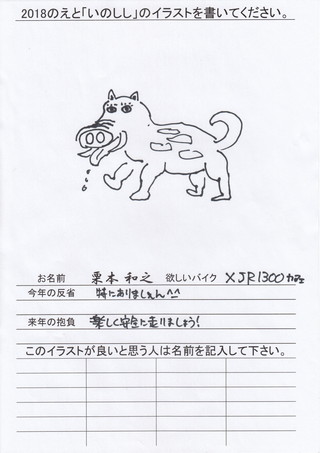 2018のえと「いのしし」のイラストを書いてください。
お名前 栗本 和之 欲しいバイク XJR1300カスタム
今年の反省 特にありましぇん^^
来年の抱負 楽しく安全に走りましょう!
このイラストが良いと思う人は名前を記入して下さい。